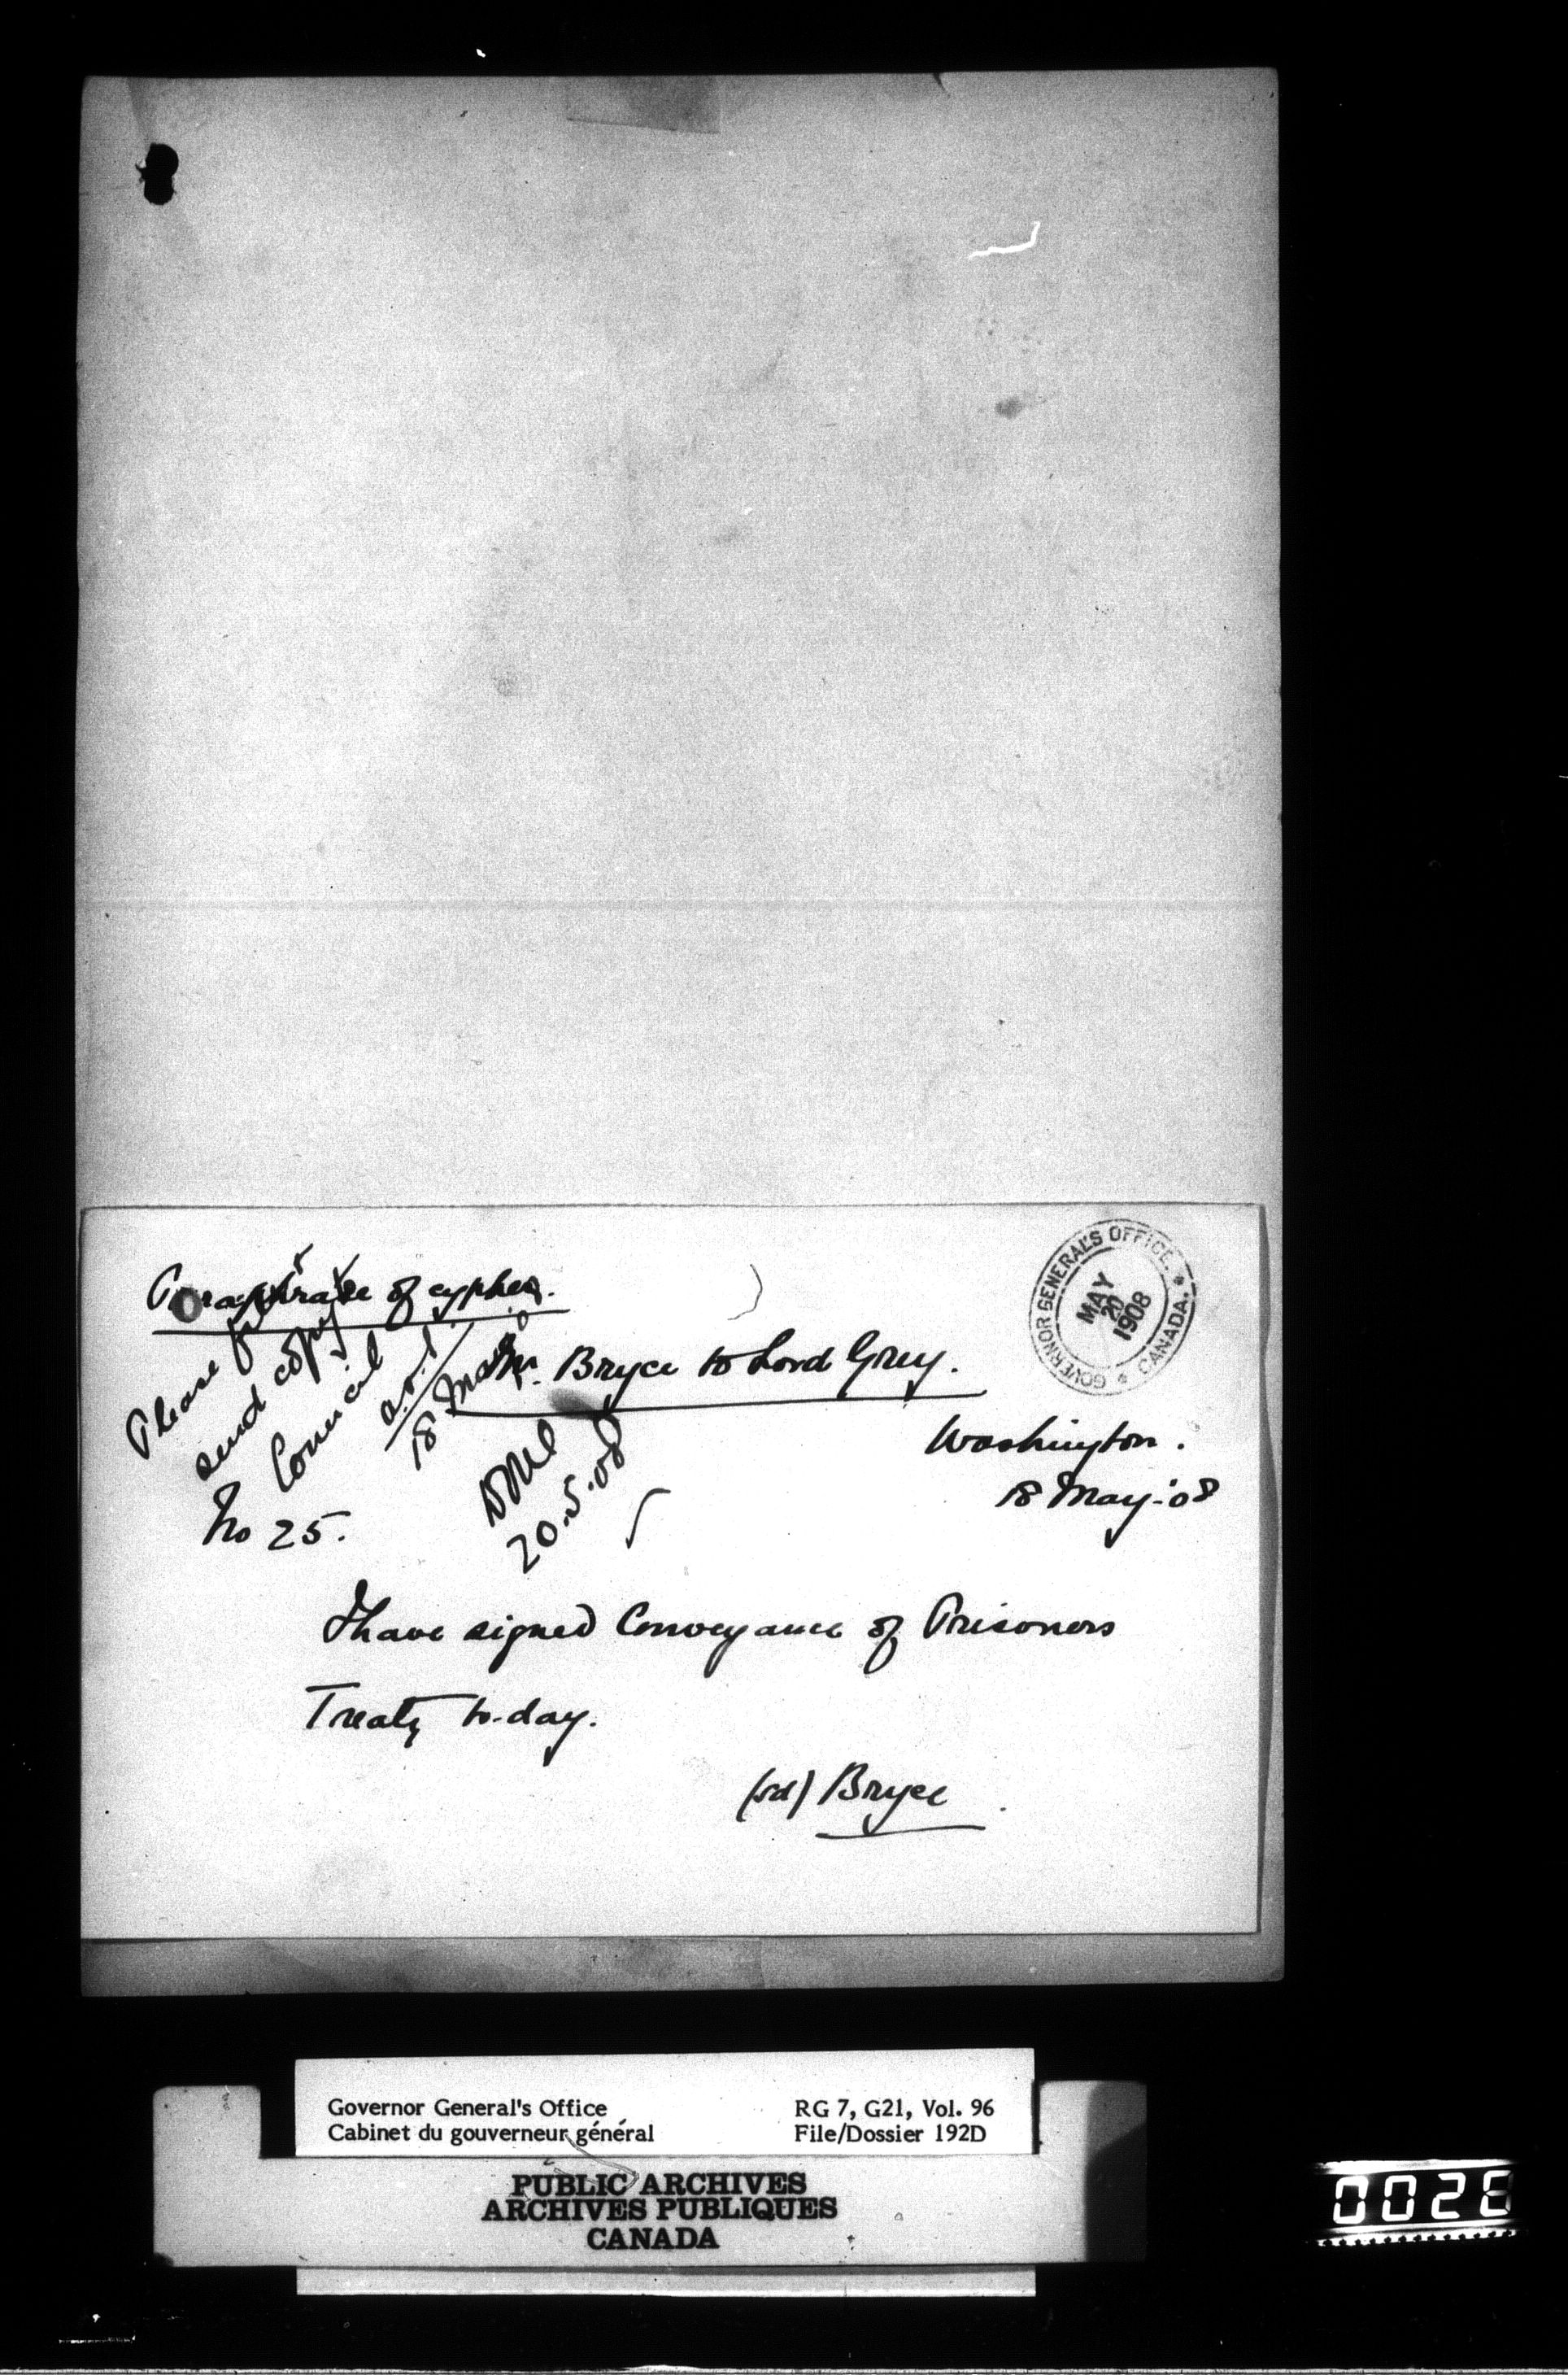 Paraphrase of cypher.
Mr. Bryce to Lord Grey.
GOVERNOR GENERAL'S OFFICE. CANADA.
MAY
20
1908
Please
send copy
Council
18 May
20.5.08
Washington.
18 May-'08
No 25.
I have signed Conveyance of Prisoners
Treaty to-day.
(sd) Bryce
Governor General's Office
Cabinet du gouverneur général
RG 7, G21, Vol. 96
File/Dossier 192D
PUBLIC ARCHIVES
ARCHIVES PUBLIQUES
CANADA